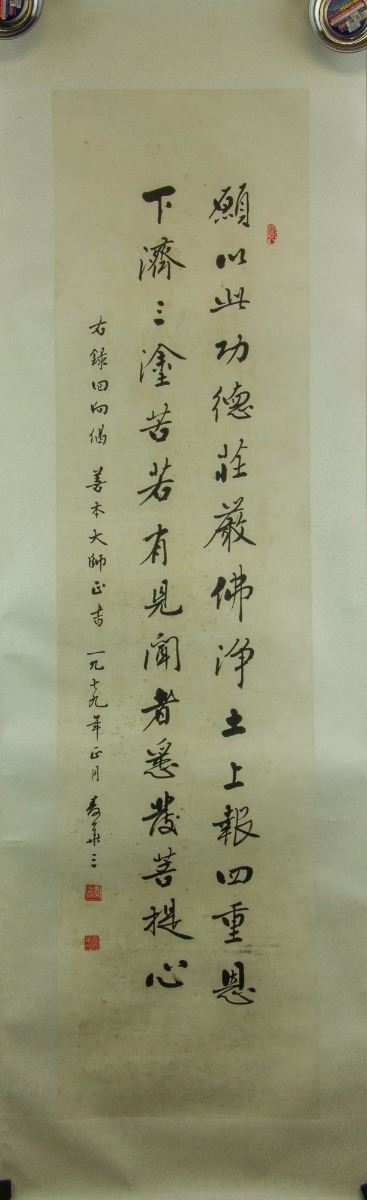 願以此功德莊嚴佛淨土上報四重恩
下濟三塗苦若有見聞者悉發菩提心
右錄回向偈 善本大師正書 一九七九年正月